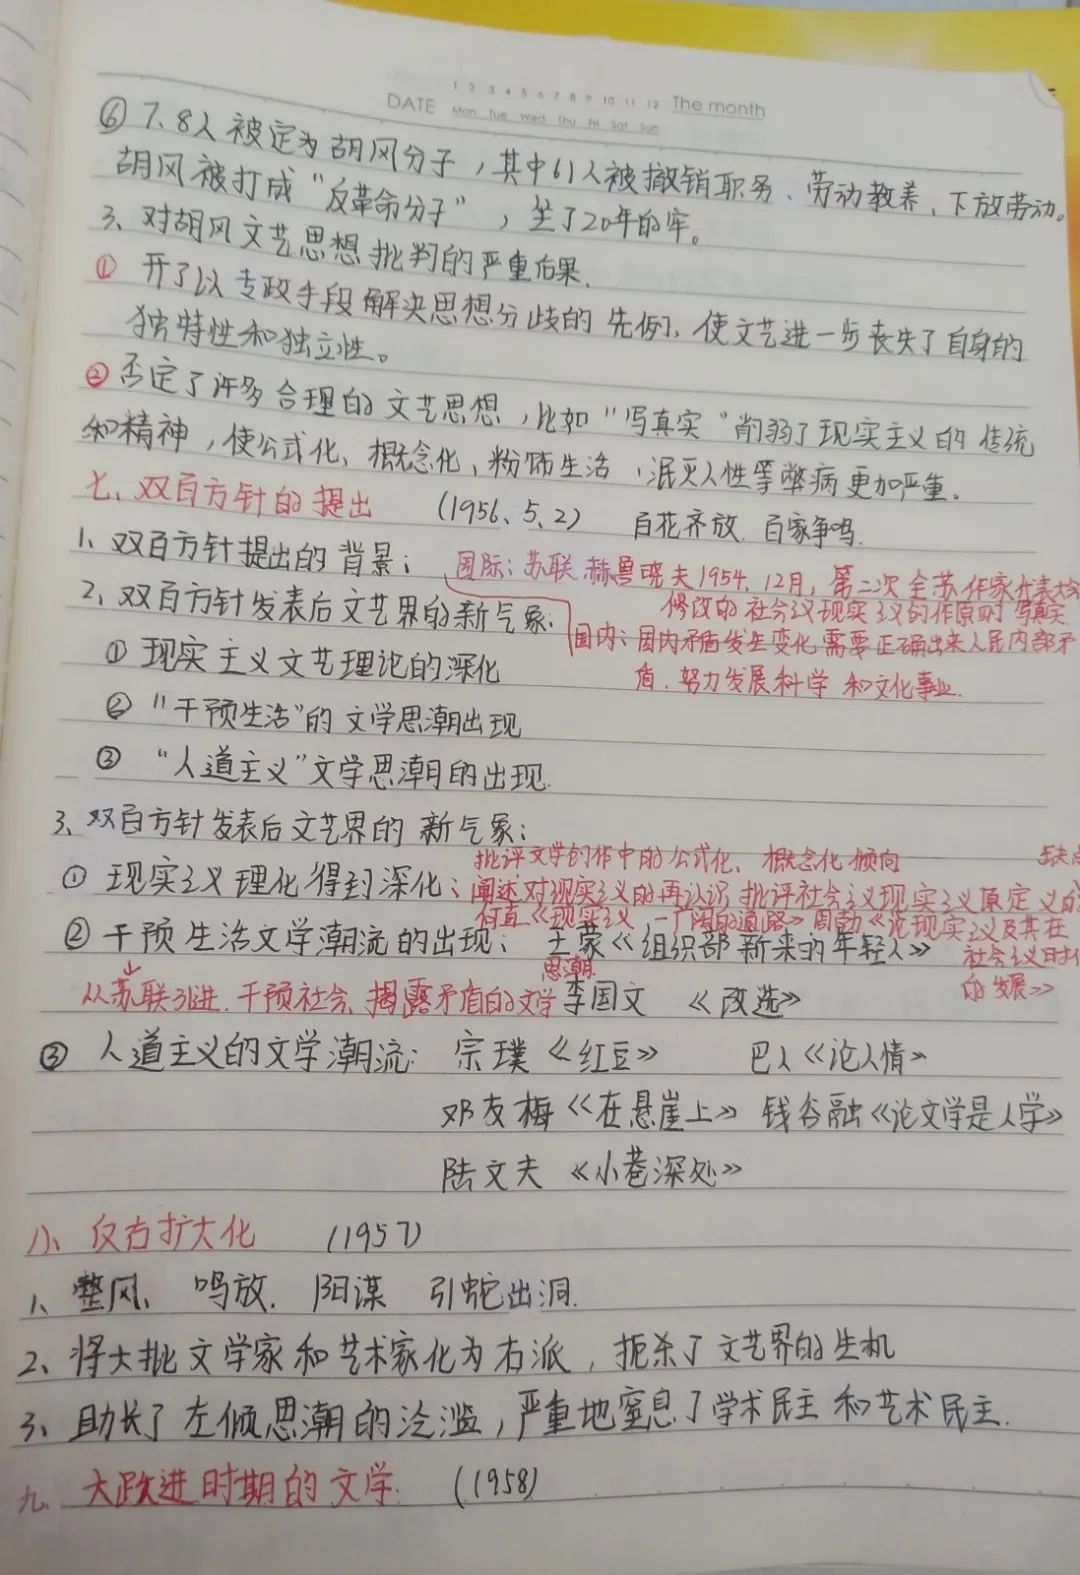 1 2 3 4 5 6 7 8 9 10 11 12
DATE Mon Tue Wed Thu Fri Sat Sun The month
⑥ 7、8人被定为胡风分子，其中61人被撤销职务、劳动教养、下放劳动。
胡风被打成“反革命分子”，坐了20年的牢。
3、对胡风文艺思想批判的严重后果.
① 开了以专政手段解决思想分歧的先例，使文艺进一步丧失了自身的
独特性和独立性。
② 否定了许多合理的文艺思想，比如“写真实”削弱了现实主义的传统
和精神，使公式化、概念化、粉饰生活、泯灭人性等弊病更加严重。
七、双百方针的提出 (1956、5、2) 百花齐放. 百家争鸣.
1、双百方针提出的背景； 国际：苏联赫鲁晓夫1954、12月，第二次全苏作家代表大会
修改的社会主义现实主义的作原则 写真实
2、双百方针发表后文艺界的新气象：
国内：国内矛盾发生变化需要正确出来人民内部矛
盾. 努力发展科学和文化事业.
① 现实主义文艺理论的深化
② “干预生活”的文学思潮出现
③ “人道主义”文学思潮的出现.
3、双百方针发表后文艺界的新气象；
批评文学创作中的公式化、概念化倾向 缺点
① 现实主义理化得到深化；阐述对现实主义的再认识 批评社会主义现实主义原定义的
何直《现实主义 一广阔的道路》周勃《论现实主义及其在
社会主义时代
的发展》
② 干预生活文学潮流的出现； 王蒙《组织部新来的年轻人》
思潮
从苏联引进. 干预社会、揭露矛盾的文学 李国文 《改选》
③ 人道主义的文学潮流： 宗璞《红豆》 巴人《论人情》
邓友梅《在悬崖上》 钱谷融《论文学是人学》
陆文夫 《小巷深处》
八、反右扩大化 (1957)
1、整风、 鸣放. 阳谋 引蛇出洞.
2、将大批文学家和艺术家化为右派，扼杀了文艺界的生机
3、助长了左倾思潮的泛滥，严重地窒息了学术民主和艺术民主.
九、大跃进时期的文学. (1958)